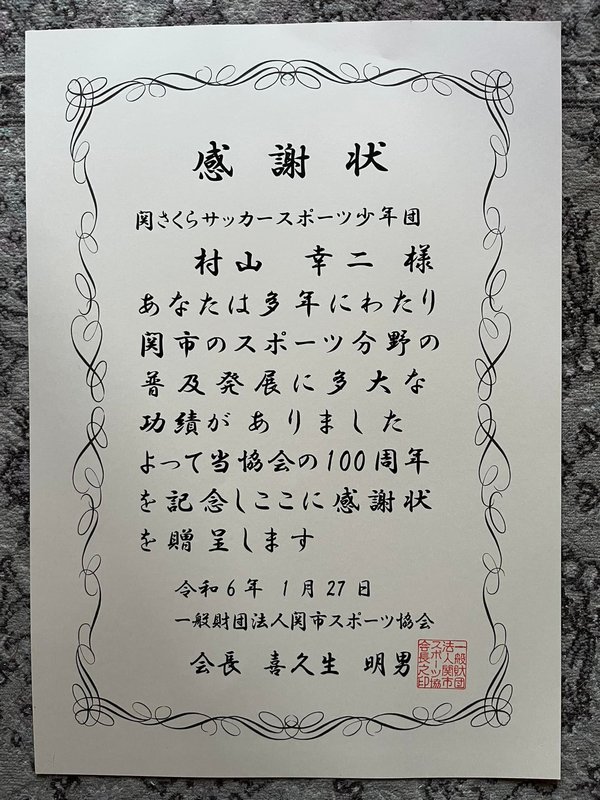 感謝状
関さくらサッカースポーツ少年団
村山 幸二 様
あなたは多年にわたり
関市のスポーツ分野の
普及発展に多大な
功績がありました
よって当協会の100周年
を記念しここに感謝状
を贈呈します
令和6年 1月27日
一般財団法人関市スポーツ協会
会長 喜久生 明男
一般財団
法人関市
スポーツ協
会長之印